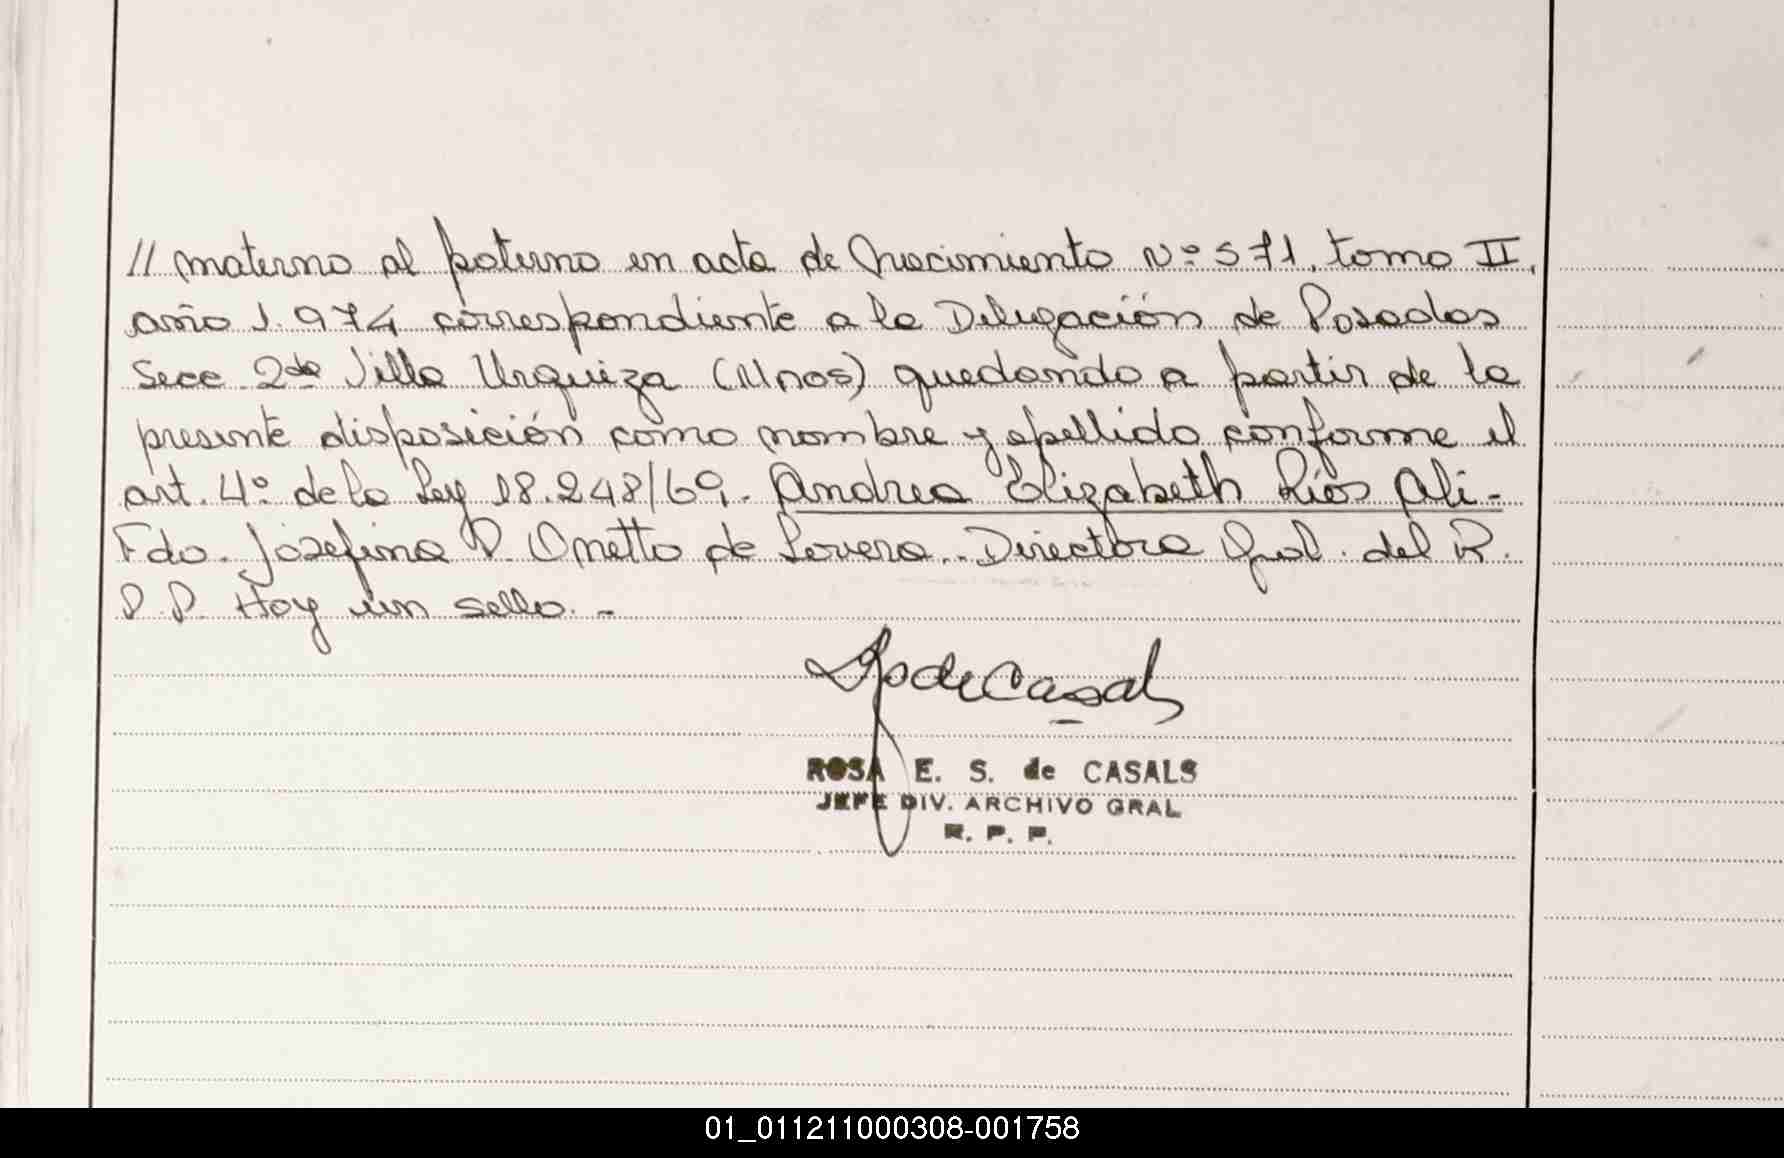 // materno al paterno en acta de Nacimiento Nº 571, tomo II,
año 1.974 correspondiente a la Delegación de Posadas
Secc 2da Villa Urquiza (Mnes) quedando a partir de la
presente disposición como nombre y apellido conforme el
art. 4º de la Ley 18.248/69. Andrea Elizabeth Ríos Ali-
Fdo. Josefina P. Ometto de Lovera.. Directora Gral. del R.
P.P. Hay un sello. -
de Casals
ROSA E. S. de CASALS
JEFE DIV. ARCHIVO GRAL
R. P. P.
01_011211000308-001758